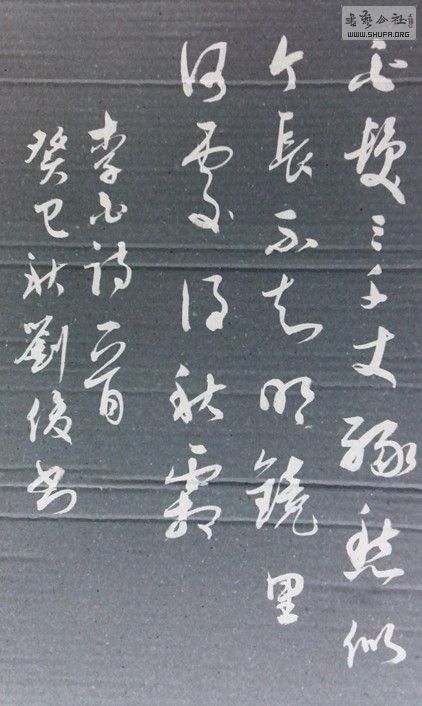 白髮三千丈缘愁似
个長不知明鏡里
何處得秋霜
李白詩一首
癸巳秋劉俊书
書艺公社
WWW.SHUFA.ORG